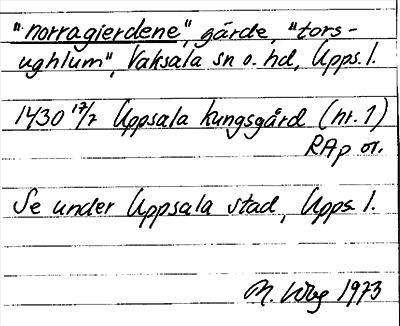 "norragierdene", gärde, "tors-
ughlum", Vaksala sn o. hd, Upps. l.
1430 17/7 Uppsala kungsgård (nr. 1)
RAp or.
Se under Uppsala stad, Upps. l.
M. Wbg 1973